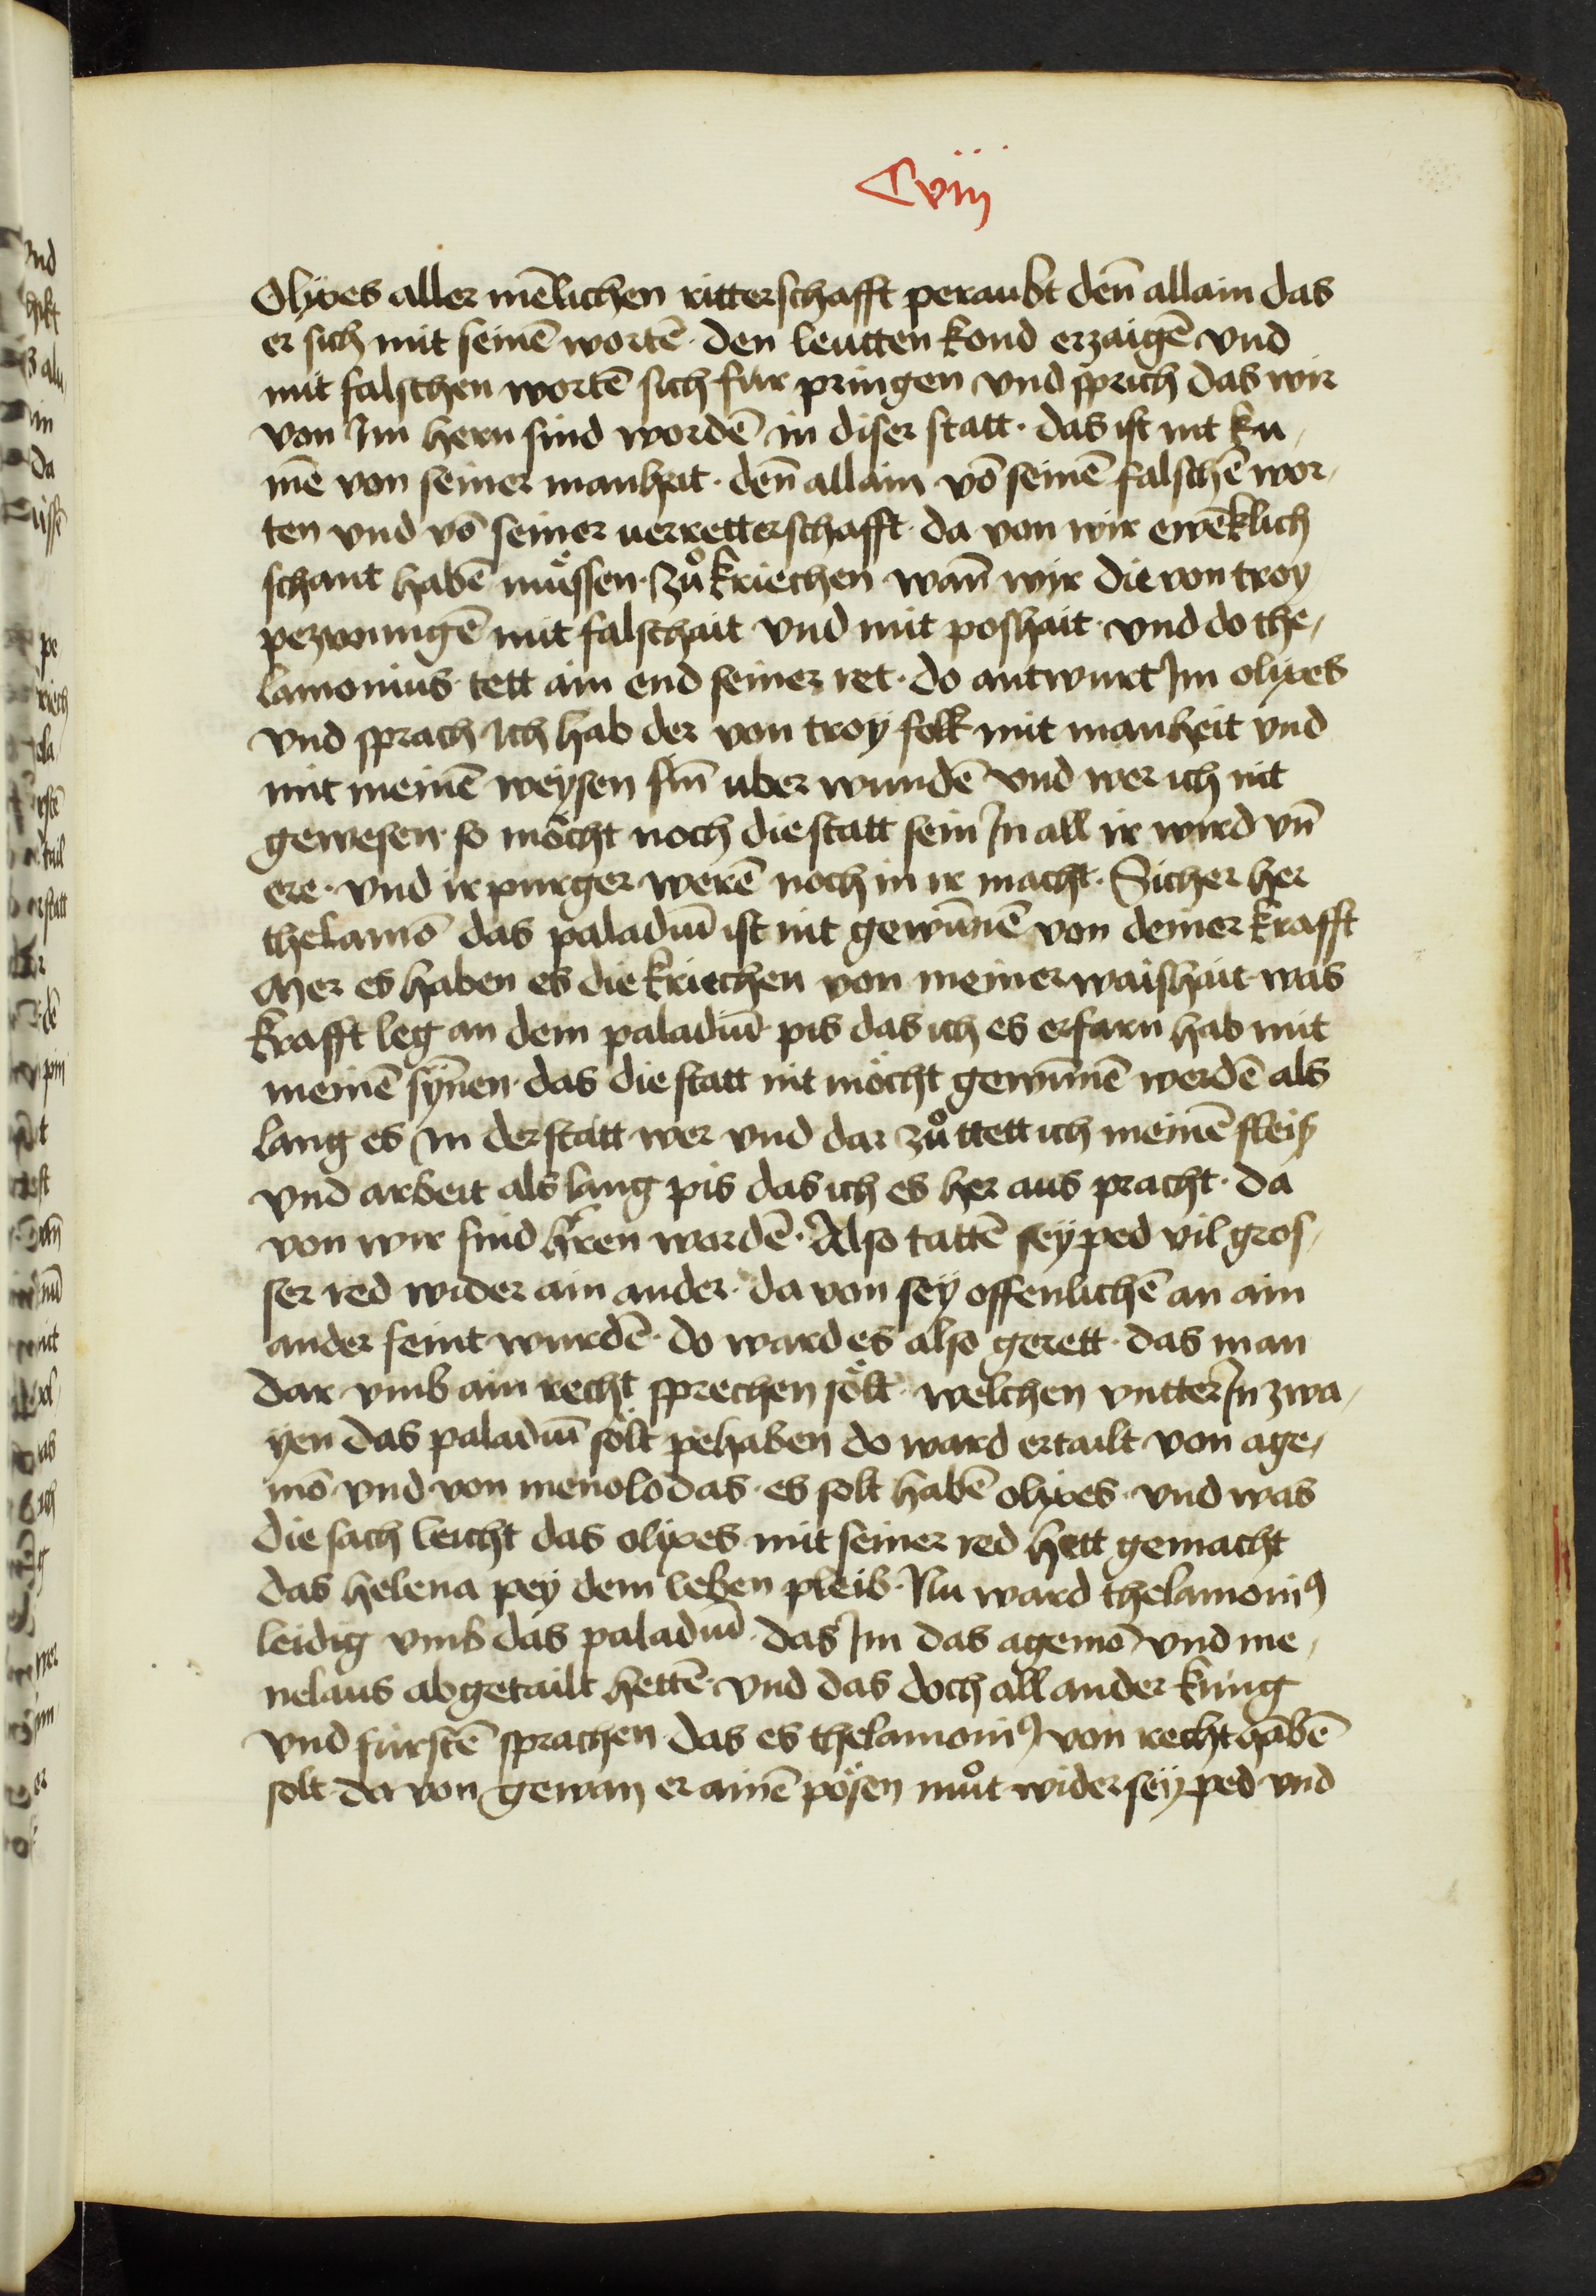 Cviij
Olixes aller mēlichen ritterschafft peraubt deñ allain das
er sich mit seinē wortē · den leutten kond erzaigē vnd
mit falschen wortē sich für pringen vnd sprich das wir
von Im hern sind wordē in diser statt · das ist nit ku¬
mē von seiner manhait · deñ allain vō seinē falschē wor¬
ten vnd vō seiner uerretterschafft · da von wir ewēklich
schant habē müssen · zů kriechen wañ wir die von troy
pezwungē mit falschait vnd mit poshait · vnd do the¬
lamonius tett ain end seiner ret · do antwurt Im olixes
vnd sprach Ich hab der von troÿ folk mit manheit vnd
mit meinē weÿsen siñ uber wundē vnd wer ich nit
gewesen · so möcht noch die statt sein In all ir wird vñ
ere · vnd ir purger werē noch in ir macht · Sicher her
thelamō das paladiū ist nit gewūnē von deiner krafft
Mer es haben es die kriechen von meiner waishait was
krafft leg an dem paladiū pis das ich es erfarn hab mit
meinē sÿnen · das die statt nit möcht gewūnē werdē als
lang es In der statt wer vnd dar zů ttett ich meinē fleiß
vnd arbeit als lang pis das ich es her aus pracht · da
von wir sind h'ren wardē · Also tattē seÿ ped vil gros¬
ser red wider ain ander · da von seÿ offenlichē an ain
ander feint wurdē · do ward es also gerett · das man
dar vmb ain recht sprechen sölt · welchen vntter In zwa¬
ÿen das paladiū sölt pehaben do ward ertailt von age¬
mō vnd von menolo das · es solt habē olixes · vnd was
die sach leicht das olixes mit seiner red hett gemacht
das helena peÿ dem leben pleib · Nu ward thelamoniꝰ
leidig vmb das paladiū · das Im das agemō vnd me¬
nelaus abgetailt hettē · vnd das doch all ander küng
vnd fürstē sprachen das es thelamoniꝰ von recht habē
solt · da von gewan er ainē pösen můt wider seÿ ped vnd